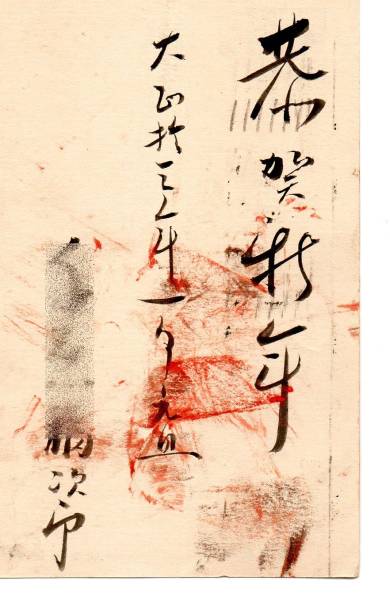 恭賀新年
大正拾三年一月元旦
次郎